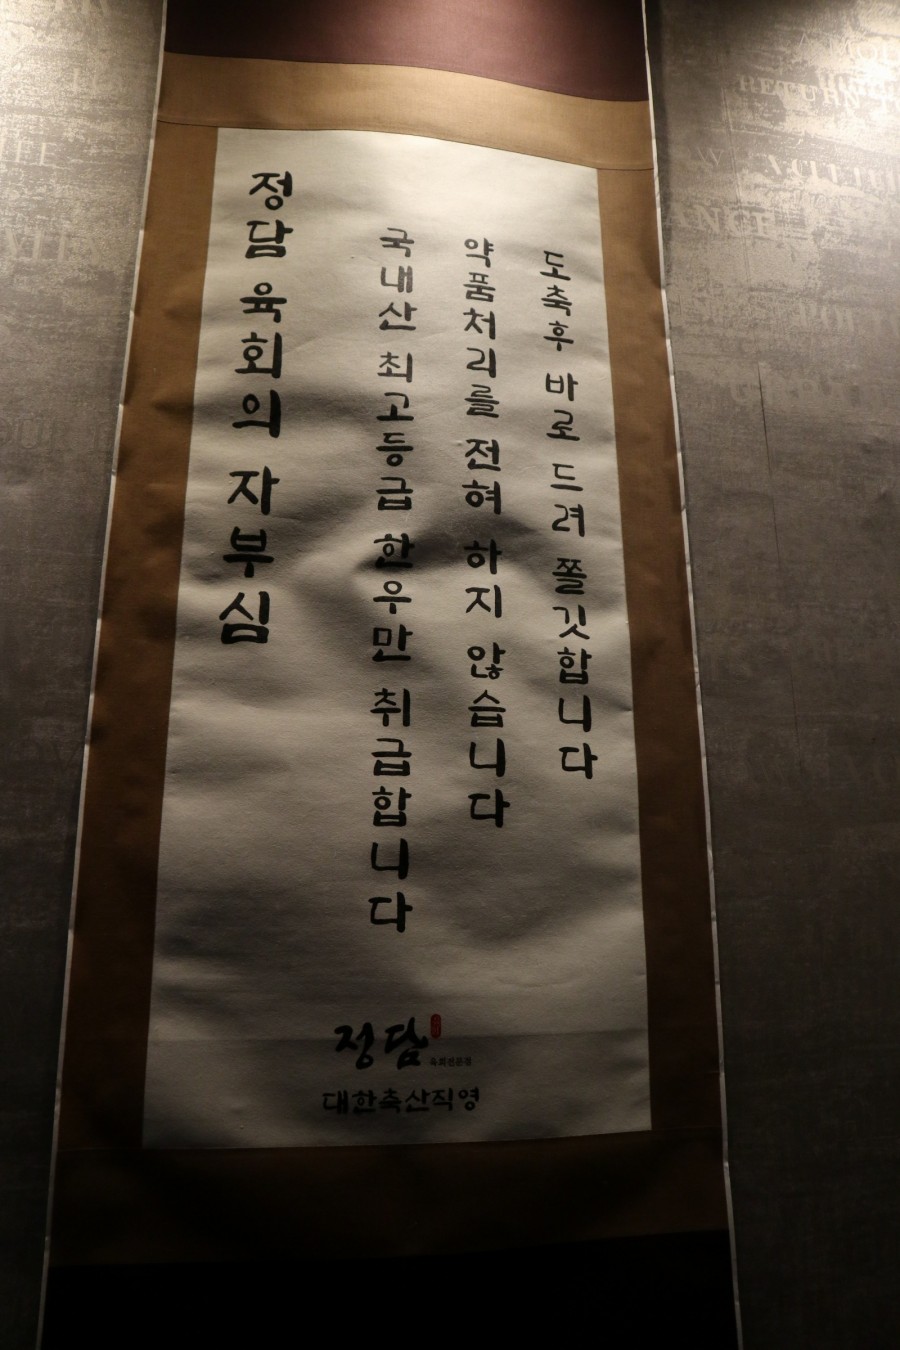 정담 육회의 자부심
국내산 최고등급 한우만 취급합니다
약품처리를 전혀 하지 않습니다
도축후 바로 드려 쫄깃합니다
정담
육회전문점
대한축산직영
RETURN